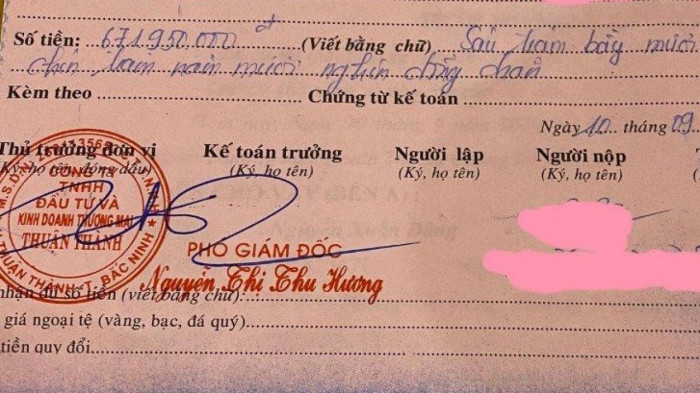 Số tiền: 671950.000 đ (Viết bằng chữ) Sáu trăm bảy mươi
chín trăm năm mươi nghìn đồng chẵn
Kèm theo Chứng từ kế toán
Ngày 10 tháng 09
Thủ trưởng đơn vị Kế toán trưởng Người lập Người nộp
(Ký, họ tên, đóng dấu) (Ký, họ tên) (Ký, họ tên) (Ký, họ tên)
CÔNG TY
TNHH
ĐẦU TƯ VÀ
KINH DOANH THƯƠNG MẠI
THUẬN THÀNH
THUẬN THÀNH - T. BẮC NINH
PHÓ GIÁM ĐỐC
Nguyễn Thị Thu Hương
nhận đủ số tiền (viết bằng chữ):
giá ngoại tệ (vàng, bạc, đá quý)
tiền quy đổi